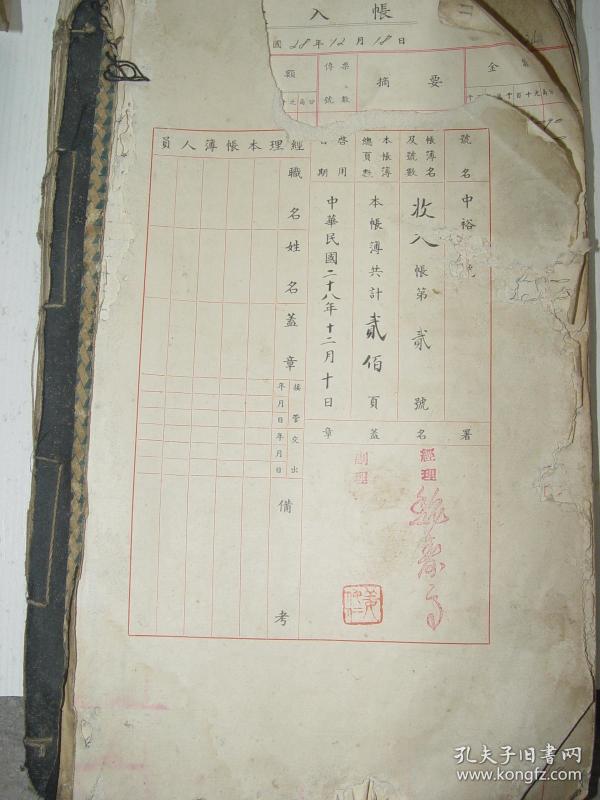 入帳
國28年12月18日
金額
摘要
傳票號數
額
號名
中裕
帳簿名及號數
收入帳第貳號
本帳簿總頁數
本帳簿共計貳佰頁
啓用日期
中華民國二十八年十二月十日
署名蓋章
經理
副理
經理本帳簿人員
職名
姓名
蓋章
接管
年月日
交出
年月日
備考
孔夫子旧书网
www.kongfz.com